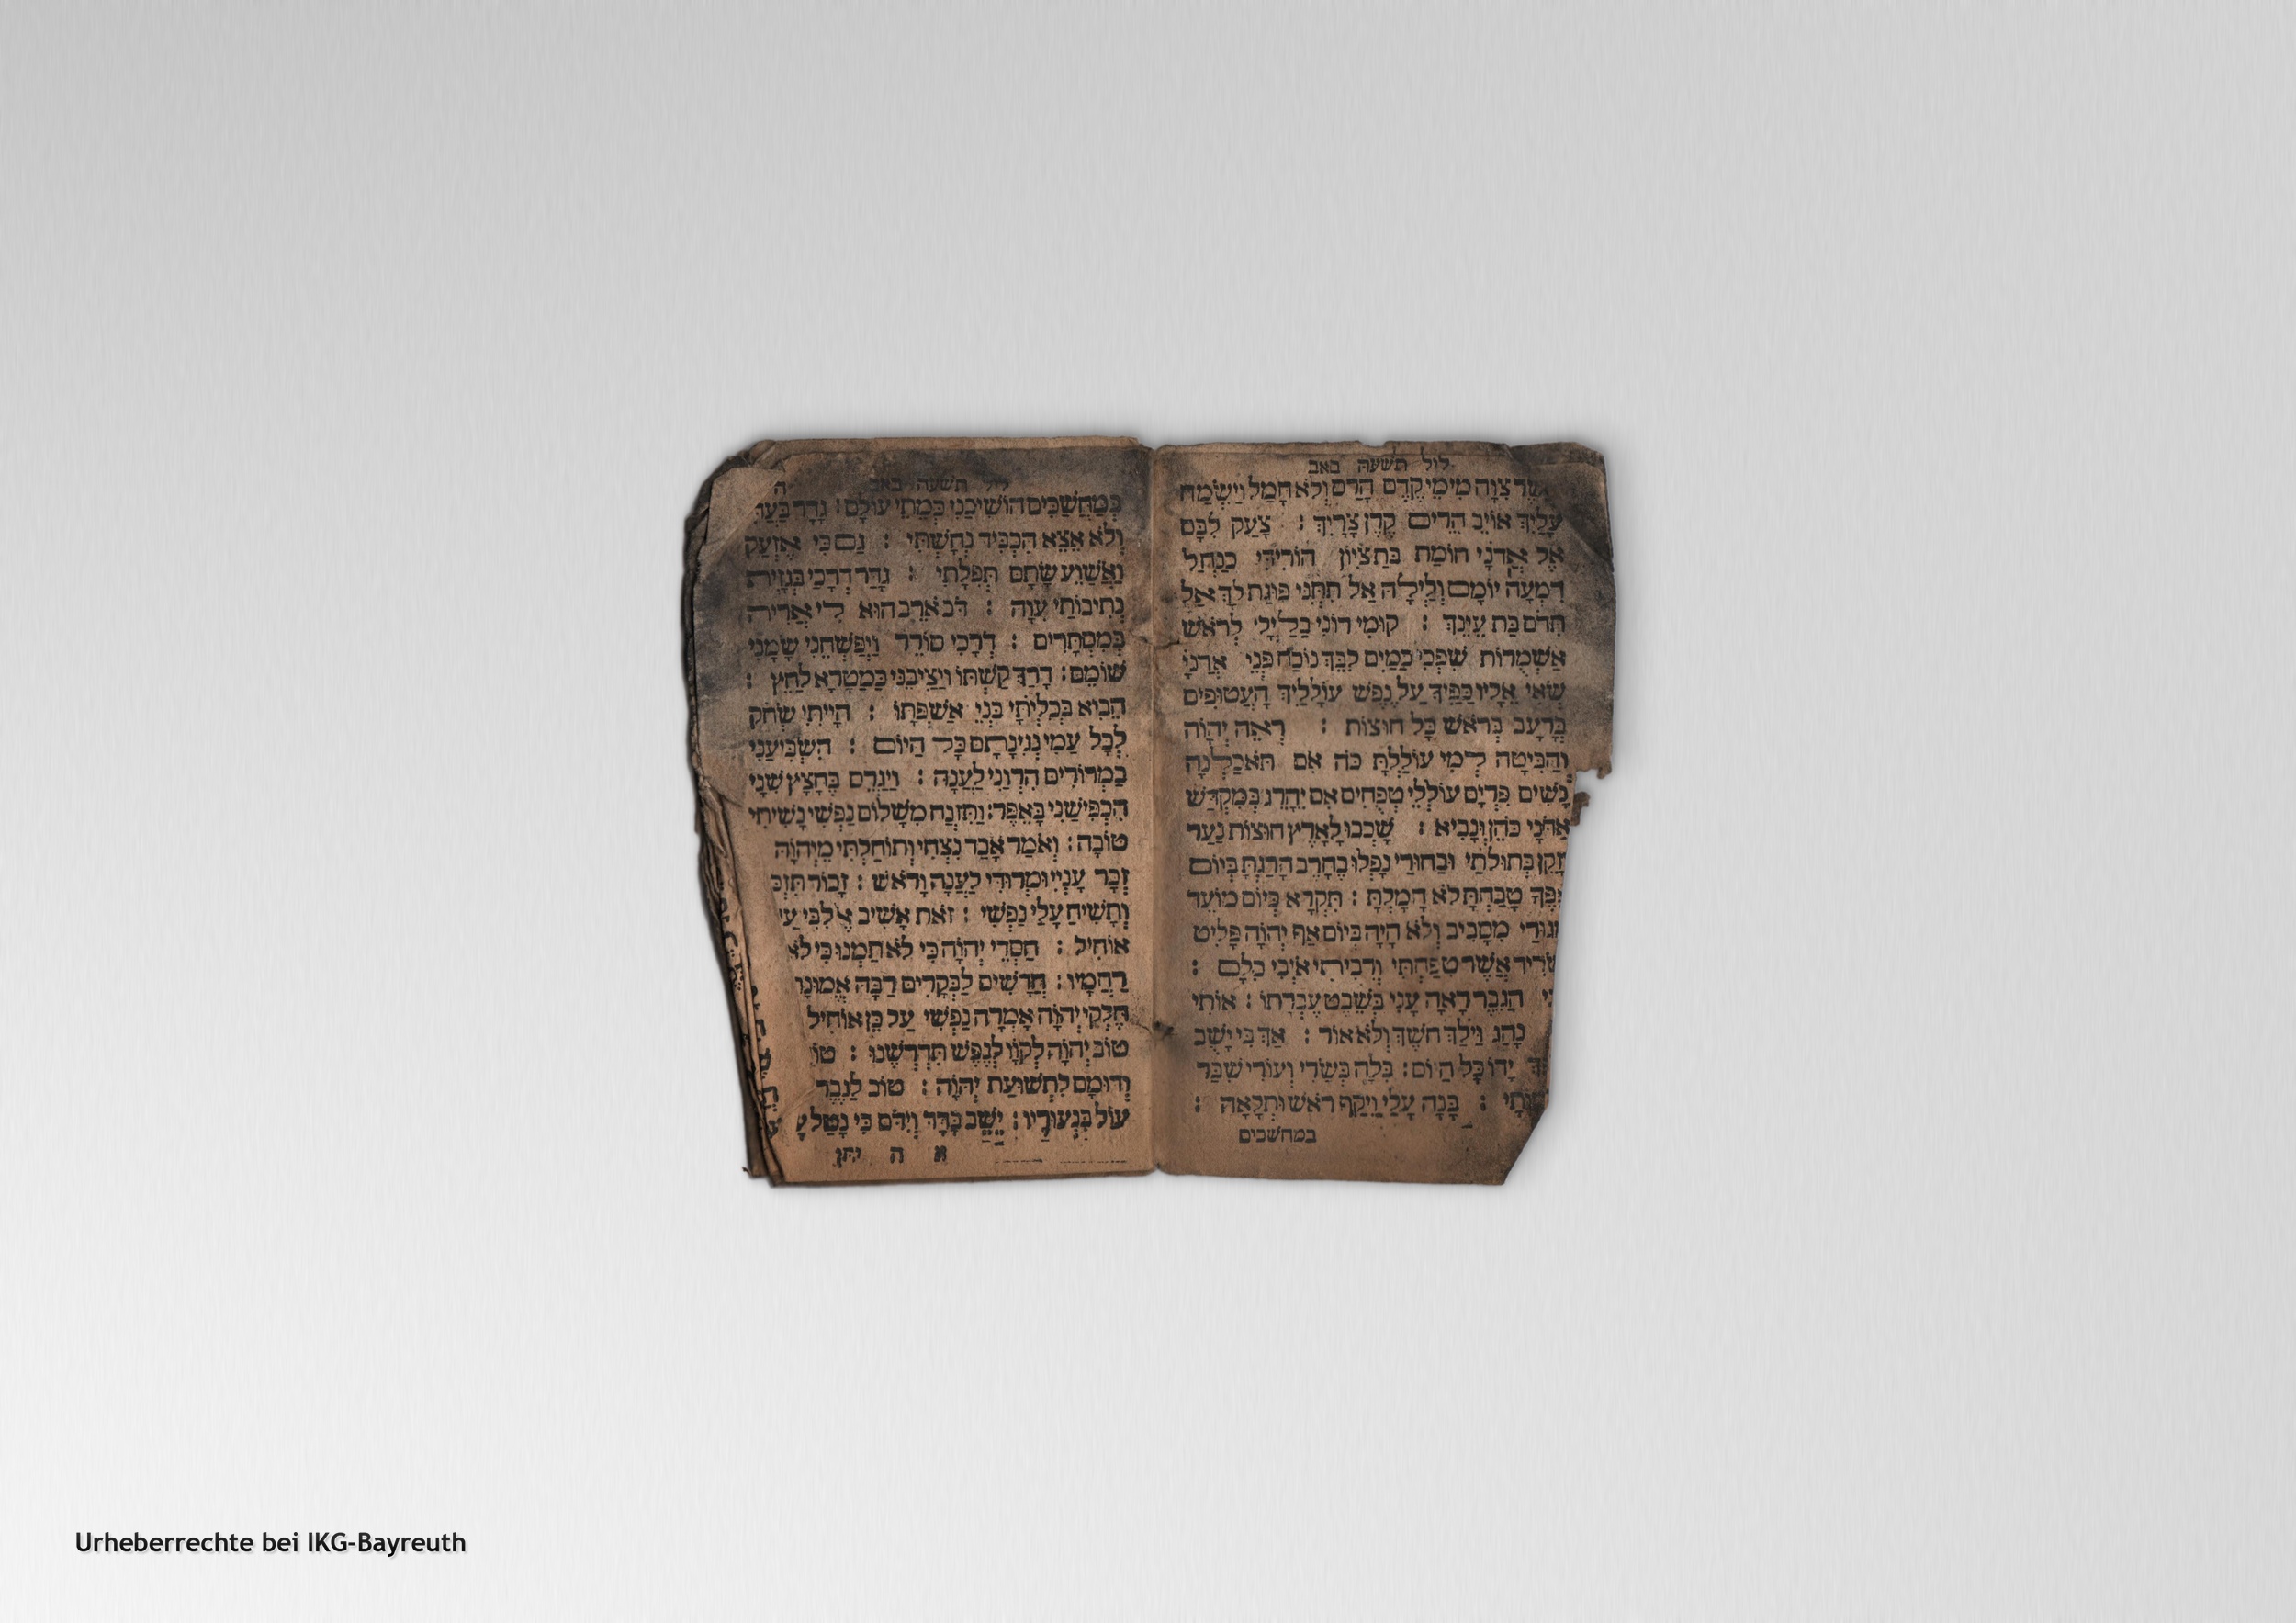 ליל תשעה באב
צִוָּה מִימֵי קֶדֶם הָרַס וְלֹא חָמָל וַיְשַׂמַּח
עָלַיִךְ אוֹיֵב הֵרִים קֶרֶן צָרָיִךְ : צָעַק לִבָּם
אֶל אֲדֹנָי חוֹמַת בַּת צִיּוֹן הוֹרִידִי כַנַּחַל
דִּמְעָה יוֹמָם וָלַיְלָה אַל תִּתְּנִי פוּגַת לָךְ אַל
תִּדֹּם בַּת עֵינֵךְ : קוּמִי רוֹנִּי בַלַּיְלָ לְרֹאשׁ
אַשְׁמֻרוֹת שִׁפְכִי כַמַּיִם לִבֵּךְ נוֹכַח פְּנֵי אֲדֹנָי
שְׂאִי אֵלָיו כַּפַּיִךְ עַל נֶפֶשׁ עוֹלָלַיִךְ הָעֲטוּפִים
בְּרָעָב בְּרֹאשׁ כָּל חוּצוֹת : רְאֵה יְהֹוָה
וְהַבִּיטָה לְמִי עוֹלַלְתָּ כֹּה אִם תֹּאכַלְנָה
נָשִׁים פִּרְיָם עוֹלְלֵי טִפֻּחִים אִם יֵהָרֵג בְּמִקְדַּשׁ
אֲדֹנָי כֹּהֵן וְנָבִיא : שָׁכְבוּ לָאָרֶץ חוּצוֹת נַעַר
וְזָקֵן בְּתוּלֹתַי וּבַחוּרַי נָפְלוּ בֶחָרֶב הָרַגְתָּ בְּיוֹם
אַפֶּךָ טָבַחְתָּ לֹא חָמָלְתָּ : תִּקְרָא כְיוֹם מוֹעֵד
מְגוּרַי מִסָּבִיב וְלֹא הָיָה בְּיוֹם אַף יְהֹוָה פָּלִיט
וְשָׂרִיד אֲשֶׁר טִפַּחְתִּי וְרִבִּיתִי אֹיְבִי כִלָּם :
הַגֶּבֶר רָאָה עֳנִי בְּשֵׁבֶט עֶבְרָתוֹ : אוֹתִי
נָהַג וַיֹּלַךְ חֹשֶׁךְ וְלֹא אוֹר : אַךְ בִּי יָשֻׁב
יָדוֹ כָּל הַיּוֹם : בִּלָּה בְשָׂרִי וְעוֹרִי שִׁבַּר
: בָּנָה עָלַי וַיַּקַּף רֹאשׁ וּתְלָאָה :
במחשכים
ליל תשעה באב ה
בְּמַחֲשַׁכִּים הוֹשִׁיבַנִי כְּמֵתֵי עוֹלָם : גָּדַר בַּעֲדִ
וְלֹא אֵצֵא הִכְבִּיד נְחָשְׁתִּי : גַּם כִּי אֶזְעַק
וַאֲשַׁוֵּעַ שָׂתַם תְּפִלָּתִי : גָּדַר דְּרָכַי בְּגָזִית
נְתִיבוֹתַי עִוָּה : דֹּב אֹרֵב הוּא לִי אֲרִיה
בְּמִסְתָּרִים : דְּרָכַי סוֹרֵר וַיְפַשְּׁחֵנִי שָׂמַנִי
שׁוֹמֵם : דָּרַךְ קַשְׁתּוֹ וַיַּצִּיבֵנִי כַּמַּטָּרָא לַחֵץ :
הֵבִיא בְּכִלְיֹתָי בְּנֵי אַשְׁפָּתוֹ : הָיִיתִי שְּׂחֹק
לְכָל עַמִּי נְגִינָתָם כָּל הַיּוֹם : הִשְׂבִּיעַנִי
בַמְּרוֹרִים הִרְוַנִי לַעֲנָה : וַיַּגְרֵס בֶּחָצָץ שִׁנָּי
הִכְפִּישַׁנִי בָּאֵפֶר : וַתִּזְנַח מִשָּׁלוֹם נַפְשִׁי נָשִׁיתִי
טוֹבָה : וָאֹמַר אָבַד נִצְחִי וְתוֹחַלְתִּי מֵיְהֹוָה
זְכָר עָנְיִי וּמְרוּדִי לַעֲנָה וָרֹאשׁ : זָכוֹר תִּזְכּ
וְתָשִׁיחַ עָלַי נַפְשִׁי : זֹאת אָשִׁיב אֶל לִבִּי עַ
אוֹחִיל : חַסְדֵי יְהֹוָה כִּי לֹא תָמְנוּ כִּי לֹא
רַחֲמָיו : חֲדָשִׁים לַבְּקָרִים רַבָּה אֱמוּנָ
חֶלְקִי יְהֹוָה אָמְרָה נַפְשִׁי עַל כֵּן אוֹחִיל
טוֹב יְהֹוָה לְקֹוָו לְנֶפֶשׁ תִּדְרְשֶׁנּוּ : טוֹ
וְדוּמָם לִתְשׁוּעַת יְהֹוָה : טוֹב לַגֶּבֶר
עוֹל בִּנְעוּרָיו : יֵשֵׁב בָּדָד וְיִדֹּם כִּי נָטַל עָ
א ה יתן
Urheberrechte bei IKG-Bayreuth